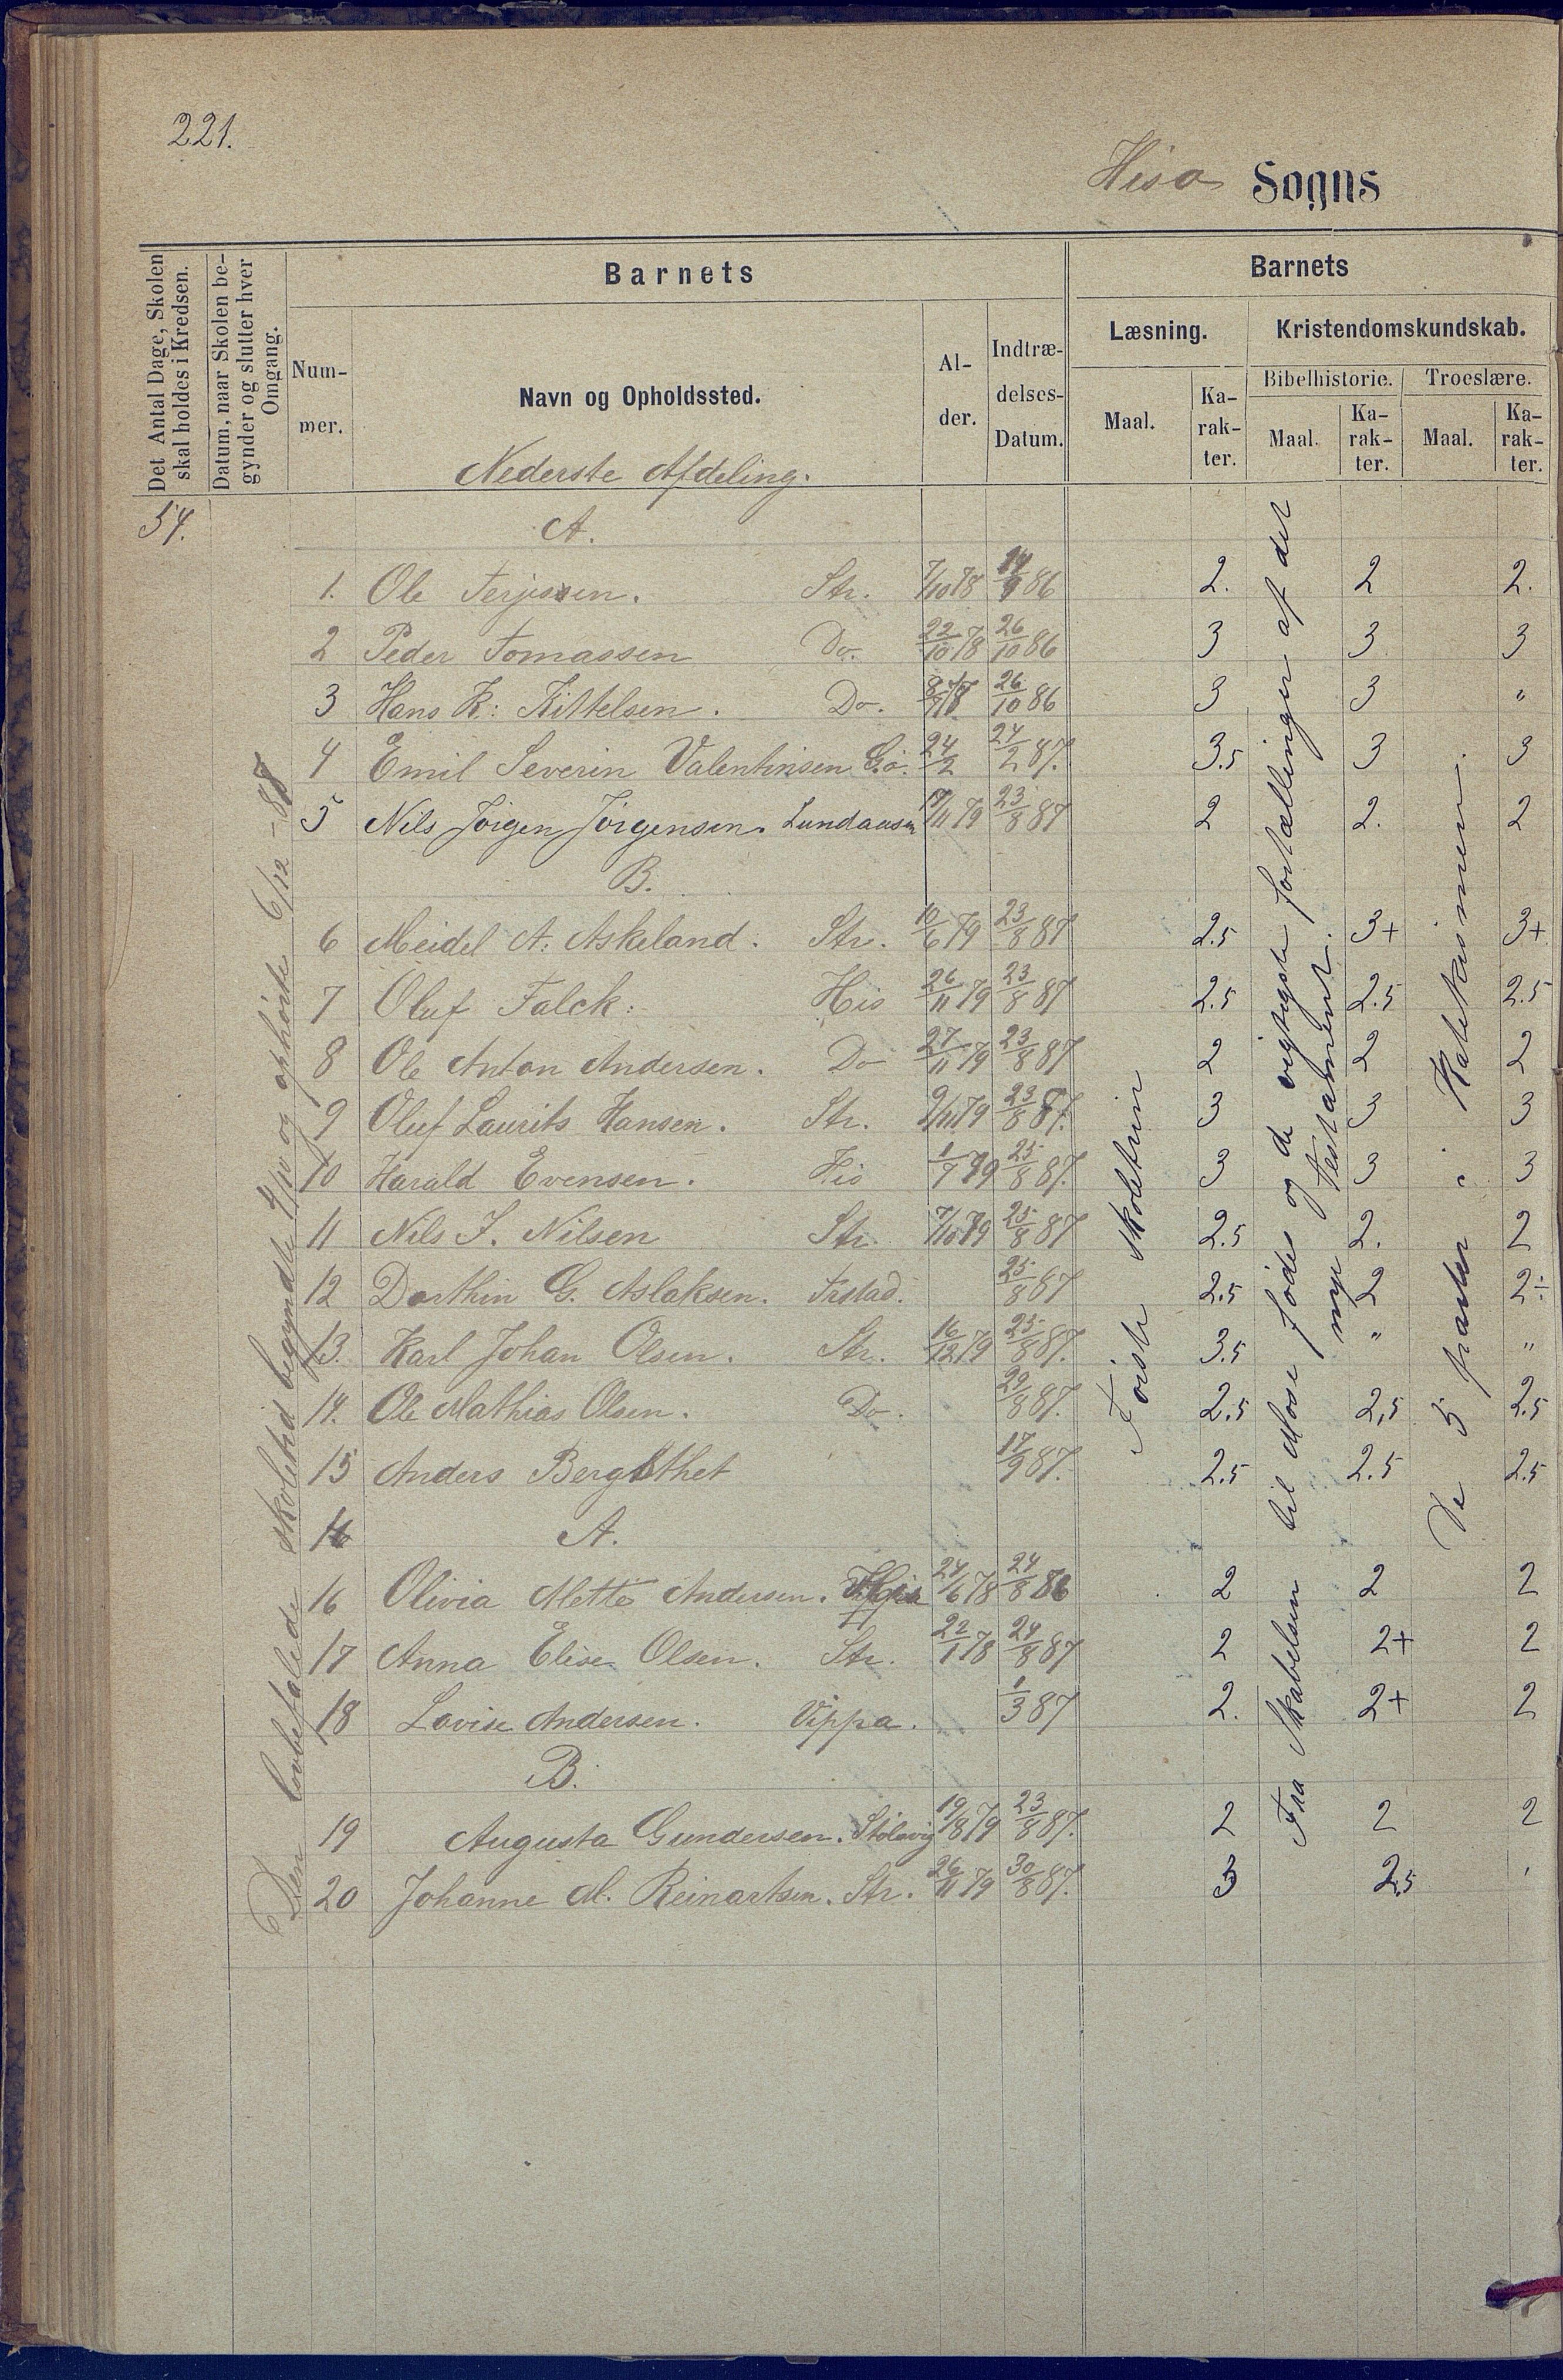 221.
Hisø Sogns
Det Antal Dage, Skolen skal holdes i Kredsen.
Datum, naar Skolen begynder og slutter hver Omgang.
Barnets
Barnets
Nummer.
Navn og Opholdssted.
Alder.
Indtrædelses-Datum.
Læsning.
Kristendomskundskab.
Bibelhistorie.
Troeslære.
Maal.
Karakter.
Maal.
Karakter.
Maal.
Karakter.
Nederste Afdeling.
54.
A.
1. Ole Terjesen. Str. 7/10 78 14/9 86 2. 2 2.
2 Peder Tomassen Do. 22/10 78 26/10 86 3 3 3
3 Hans K: Kittelsen. Do. 26/10 86 3 3 "
4 Emil Severin Valentinsen G.ø. 24/2 24/2 87. 3.5 3 3
5 Nils Jörgen Jörgensen. 79 23/8 87 2 2. 2
B.
6 Meidel A. Askeland. Str. 10/6 79 23/8 87 2.5 3+ 3+
7 Oluf Falck: His 26/11 79 23/8 87 2.5 2.5 2.5
8 Ole Anton Andersen. Do 27/11 79 23/8 87 2 2 2
9 Oluf Laurits Hansen. Str. 9/11 79 23/8 87. 3 3 3
10 Harald Evensen. His 1/7 79 25/8 87. 3 3 3
11 Nils J. Nilsen Str. 7/10 79 25/8 87 2.5 2. 2
12 Dorthin G. Aslaksen. 25/8 87 2.5 2 2÷
13. Karl Johan Olsen. Str. 16/12 79 25/8 87. 3.5 " "
14. Ole Mathias Olsen. Do. 29/8 87. 2.5 2,5 2.5
15 Anders Bergsthet 17/9 87. 2.5 2.5 2.5
16 A.
16 Olivia Mette Andersen. 24/6 78 24/8 86 2 2 2
17 Anna Elise Olsen. Str. 22/1 78 24/8 87 2 2+ 2
18 Lovise Andersen. Vippa. 1/3 87 2. 2+ 2
B.
19 Augusta Gundersen. Stölsvig 19/8 79 23/8 87. 2 2 2
20 Johanne M. Reinartsen. Str. 26/11 79 30/8 87. 3 2,5
Den lovbefalede skoletid begyndte 4/10 og ophörte 6/12 - 87
Förste Skoletrin
Fra Skabelsen til Mose födes og de vigtigste fortællinger af det
nye Testament.
De 5 parter i Katekismen.